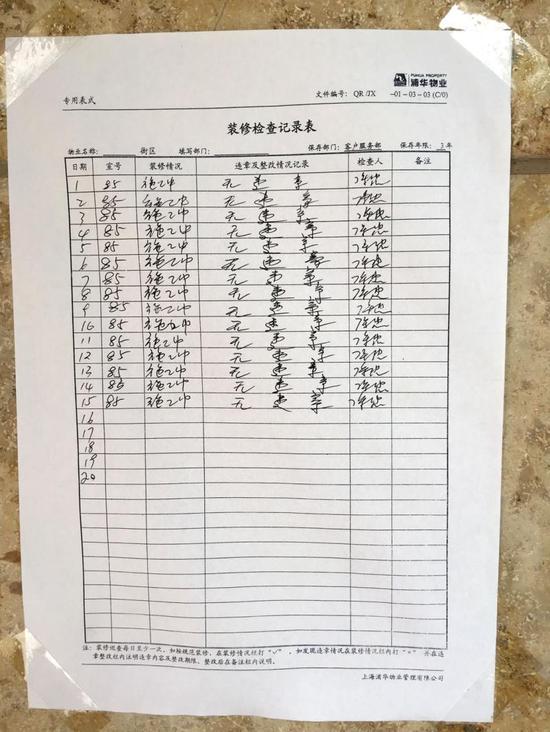 PUHUA PROPERTY
浦华物业
专用表式 文件编号: QR /ZX —01－03－03 (C/0)
装修检查记录表
物业名称: 街区 填写部门: 保存部门: 客户服务部 保存年限: 3 年
日期 室号 装修情况 违章及整改情况记录 检查人 备注
1 85 施工中 无 违 章
2 85 施工中 无 违 章
3 85 施工中 无 违 章
4 85 施工中 无 违 章
5 85 施工中 无 违 章
6 85 施工中 无 违 章
7 85 施工中 无 违 章
8 85 施工中 无 违 章
9 85 施工中 无 违 章
10 85 施工中 无 违 章
11 85 施工中 无 违 章
12 85 施工中 无 违 章
13 85 施工中 无 违 章
14 85 施工中 无 违 章
15 85 施工中 无 违 章
16
17
18
19
20
注: 装修巡查每日至少一次, 如按规范装修, 在装修情况栏打 "√", 如发现违章情况在装修情况栏内打 "×" 并在违
章整改栏内注明违章内容及整改期限, 整改后在备注栏内说明。
上海浦华物业管理有限公司